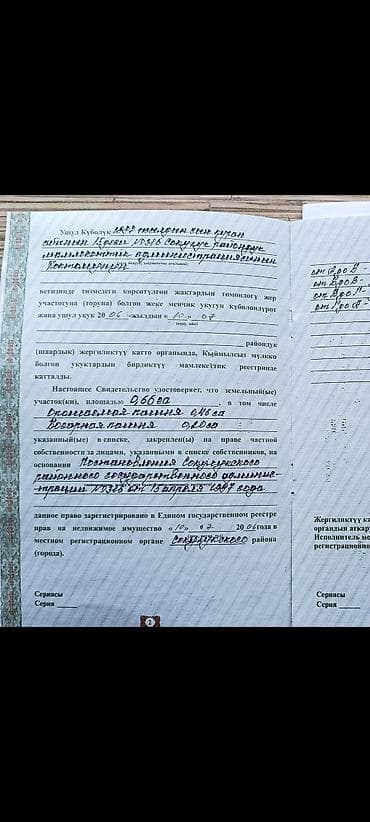 Ушул Күбөлүк 1997 жылдын
айынын № 316 Сокулук райондук
мамлекеттик администрациясынын
негизинде тизмедеги көрсөтүлгөн жактардын төмөндөгү жер
участогуна (торуна) болгон жеке менчик укугун күбөлөндүрөт
жана ушул укук 20 06 -жылдын « 10 » 07
райондук
(шаардык) жергиликтүү катто органында, Кыймылсыз мүлккө
болгон укуктардын бирдиктүү мамлекеттик реестринде
катталды.
Настоящее Свидетельство удостоверяет, что земельный(ые)
участок(ки), площадью 0,66 га, в том числе
Орошаемая пашня 0,46 га
Богарная пашня 0,20 га
указанный(ые) в списке, закреплен(ы) на праве частной
собственности за лицами, указанными в списке собственников, на
основании Постановления Сокулукского
районного государственного админис-
-трации № 316 от 15 апреля 1997 года
данное право зарегистрировано в Едином государственном реестре
прав на недвижимое имущество « 10 » 07 20 06 года в
местном регистрационном органе Сокулукского района
(города).
Сериясы
Серия
2
Жергиликтүү
органдын
Исполнитель
регистрационно
Сериясы
Серия